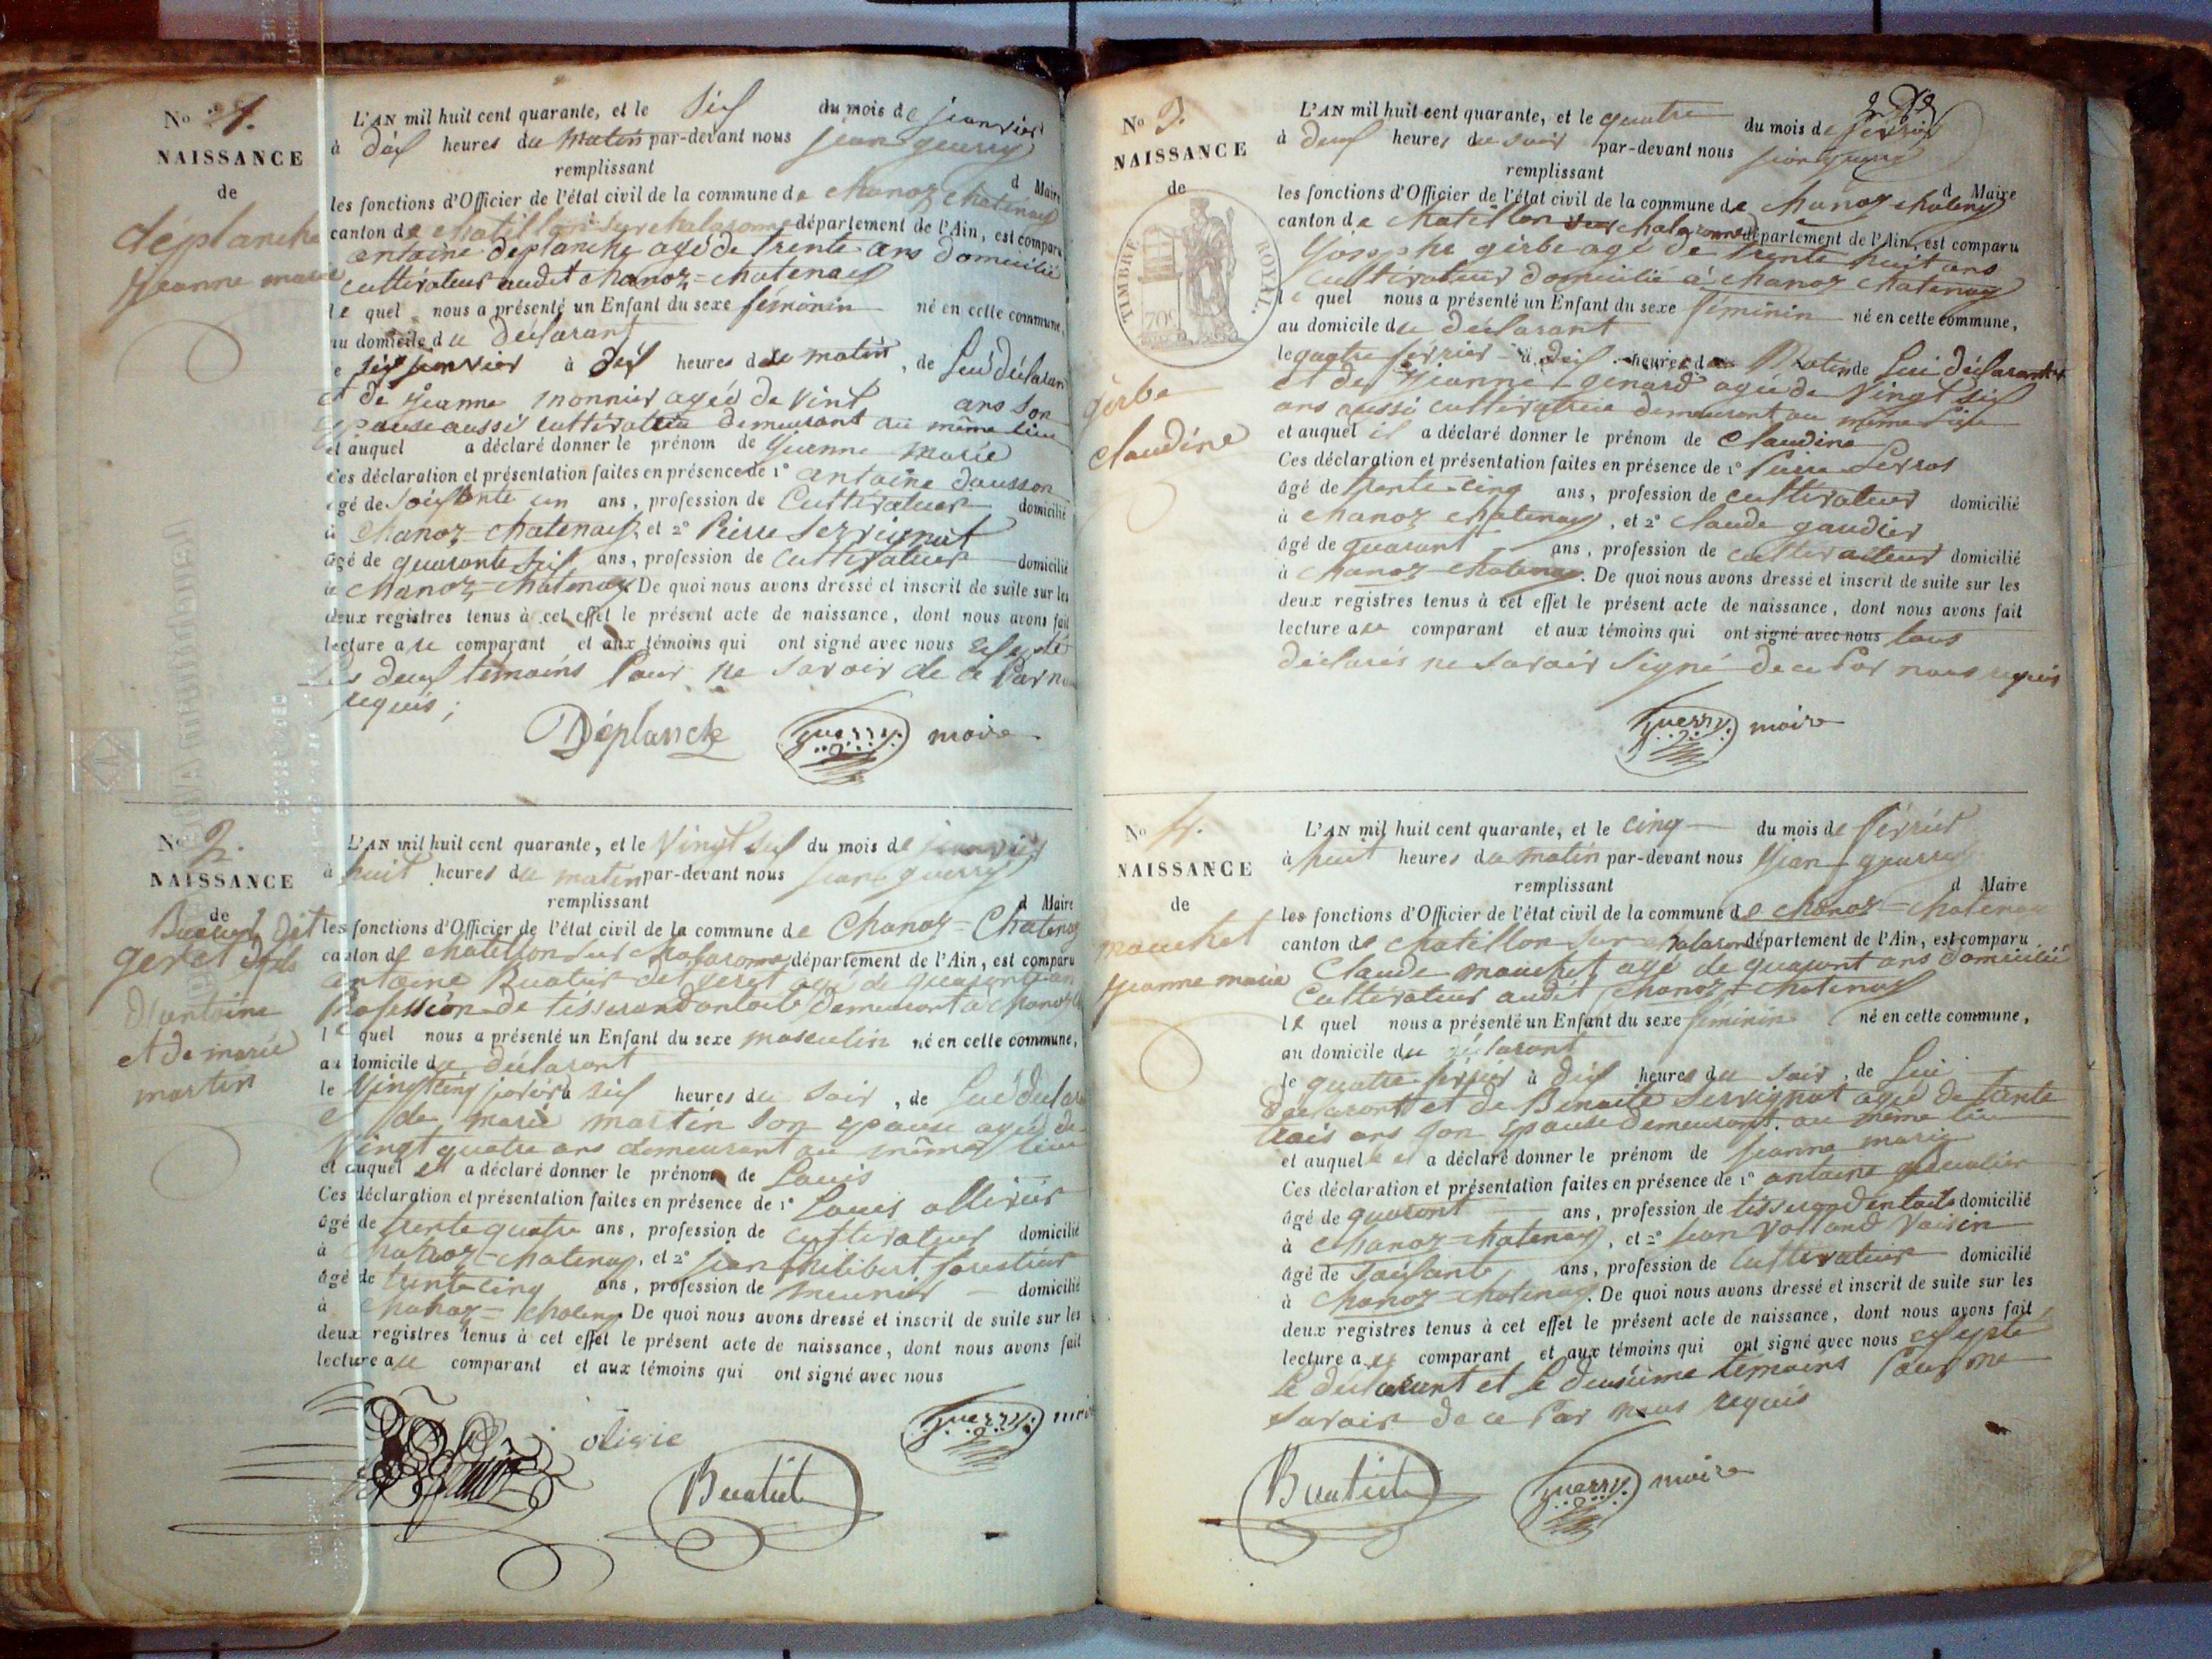 No 1.
NAISSANCE
de
déplanche
jeanne marie
L'AN mil huit cent quarante, et le Six du mois de janvier
à dix heures du matin par-devant nous jean guerry
remplissant d Maire
les fonctions d'Officier de l'état civil de la commune de chanoz chatenay
canton de chatillon sur chalaronne département de l'Ain, est comparu
antoine deplanche agé de trente ans domicilié
cultivateur audit chanoz=chatenay
le quel nous a présenté un Enfant du sexe féminin né en cette commune,
au domicile du declarant
à heures du matin, de Lui déclarant
et de jeanne monnier agée de vint ans son
epouse aussi cultivatrice demeurant au même lieu
et auquel a déclaré donner le prénom de jeanne marie
Ces déclaration et présentation faites en présence de 1° antoine
âgé de soixante un ans, profession de Cultivateur domicilié
à chanoz-chatenay, et 2° Pierre Servignat
âgé de quarante six ans, profession de cultivateur domicilié
à chanoz=chatenay. De quoi nous avons dressé et inscrit de suite sur les
deux registres tenus à cet effet le présent acte de naissance, dont nous avons fait
lecture au comparant et aux témoins qui ont signé avec nous
les deux témoins Pour ne savoir de ce Par nous
requis;
Déplanche Guerry maire
No 2.
NAISSANCE
de
dit
geret fils
d'antoine
et de marie
martin
L'AN mil huit cent quarante, et le Vingt six du mois de janvier
à huit heures du matin par-devant nous jean guerry
remplissant d Maire
les fonctions d'Officier de l'état civil de la commune de Chanoz=Chatenay
canton de chatillon sur chalaronne département de l'Ain, est comparu
antoine dit geret agé de quarante an
profession de tisserand demeurant à chanoz
le quel nous a présenté un Enfant du sexe masculin né en cette commune,
au domicile du déclarant
le Vingt cinq à six heures du soir, de Lui
et de marie martin son epouse agée de
vingt quatre ans demeurant au même lieu
et auquel il a déclaré donner le prénom de Louis
Ces déclaration et présentation faites en présence de 1° Louis
âgé de trente quatre ans, profession de cultivateur domicilié
à chanoz-chatenay, et 2° jean philibert forestier
âgé de trente cinq ans, profession de meunier domicilié
à chanoz= De quoi nous avons dressé et inscrit de suite sur les
deux registres tenus à cet effet le présent acte de naissance, dont nous avons fait
lecture au comparant et aux témoins qui ont signé avec nous
olivie
Guerry
No 3.
NAISSANCE
de
TIMBRE ROYAL.
70c
gerbe
claudine
L'AN mil huit cent quarante, et le quatre du mois de février
à deux heures du soir par-devant nous jean guerry
remplissant d Maire
les fonctions d'Officier de l'état civil de la commune de chanoz chatenay
canton de chatillon sur chalaronne département de l'Ain, est comparu
gerbe agé de trente huit ans
cultivateur domicilié à chanoz chatenay
le quel nous a présenté un Enfant du sexe féminin né en cette commune,
au domicile du déclarant
le quatre février à dix heures du Matin de Lui déclarant
et de jeanne genard agée de vingt six
ans aussi cultivatrice demeurant au même lieu
et auquel il a déclaré donner le prénom de Claudine
Ces déclaration et présentation faites en présence de 1°
âgé de trente-cinq ans, profession de cultivateur domicilié
à chanoz chatenay, et 2° claude gaudier
âgé de quarant ans, profession de cultivateur domicilié
à chanoz-chatenay. De quoi nous avons dressé et inscrit de suite sur les
deux registres tenus à cet effet le présent acte de naissance, dont nous avons fait
lecture au comparant et aux témoins qui ont signé avec nous tous
déclarés ne savoir Signé de ce Par nous requis
Guerry maire
No 4.
NAISSANCE
de
mouchet
jeanne marie
L'AN mil huit cent quarante, et le cinq du mois de février
à huit heures du matin par-devant nous jean guerry
remplissant d Maire
les fonctions d'Officier de l'état civil de la commune de chanoz-chatenay
canton de chatillon sur chalaronne département de l'Ain, est comparu
Claude mouchet agé de quarant ans domicilié
Cultivateur audit Chanoz-chatenay
le quel nous a présenté un Enfant du sexe feminin né en cette commune,
au domicile du déclarant
le quatre février à dix heures du soir, de Lui
déclarant et de Benoite Servignat agée de trente
trois ans son epouse demeurant au même lieu
et auquel a déclaré donner le prénom de jeanne marie
Ces déclaration et présentation faites en présence de 1° antoine
âgé de quarant ans, profession de tisserand domicilié
à Chanoz=chatenay, et 2° jean voisin
âgé de soixante ans, profession de cultivateur domicilié
à Chanoz-chatenay. De quoi nous avons dressé et inscrit de suite sur les
deux registres tenus à cet effet le présent acte de naissance, dont nous avons fait
lecture au comparant et aux témoins qui ont signé avec nous
le déclarant et le deuxième témoins Pour ne
savoir de ce Par nous requis
Guerry maire